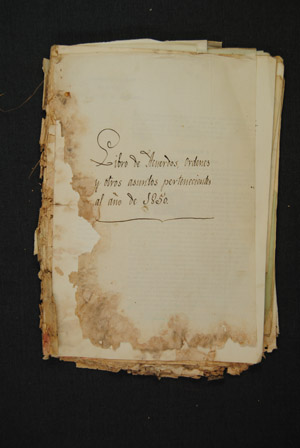 Libro de Acuerdos, ordenes
y otros asuntos pertenecientes
al año de 1836.